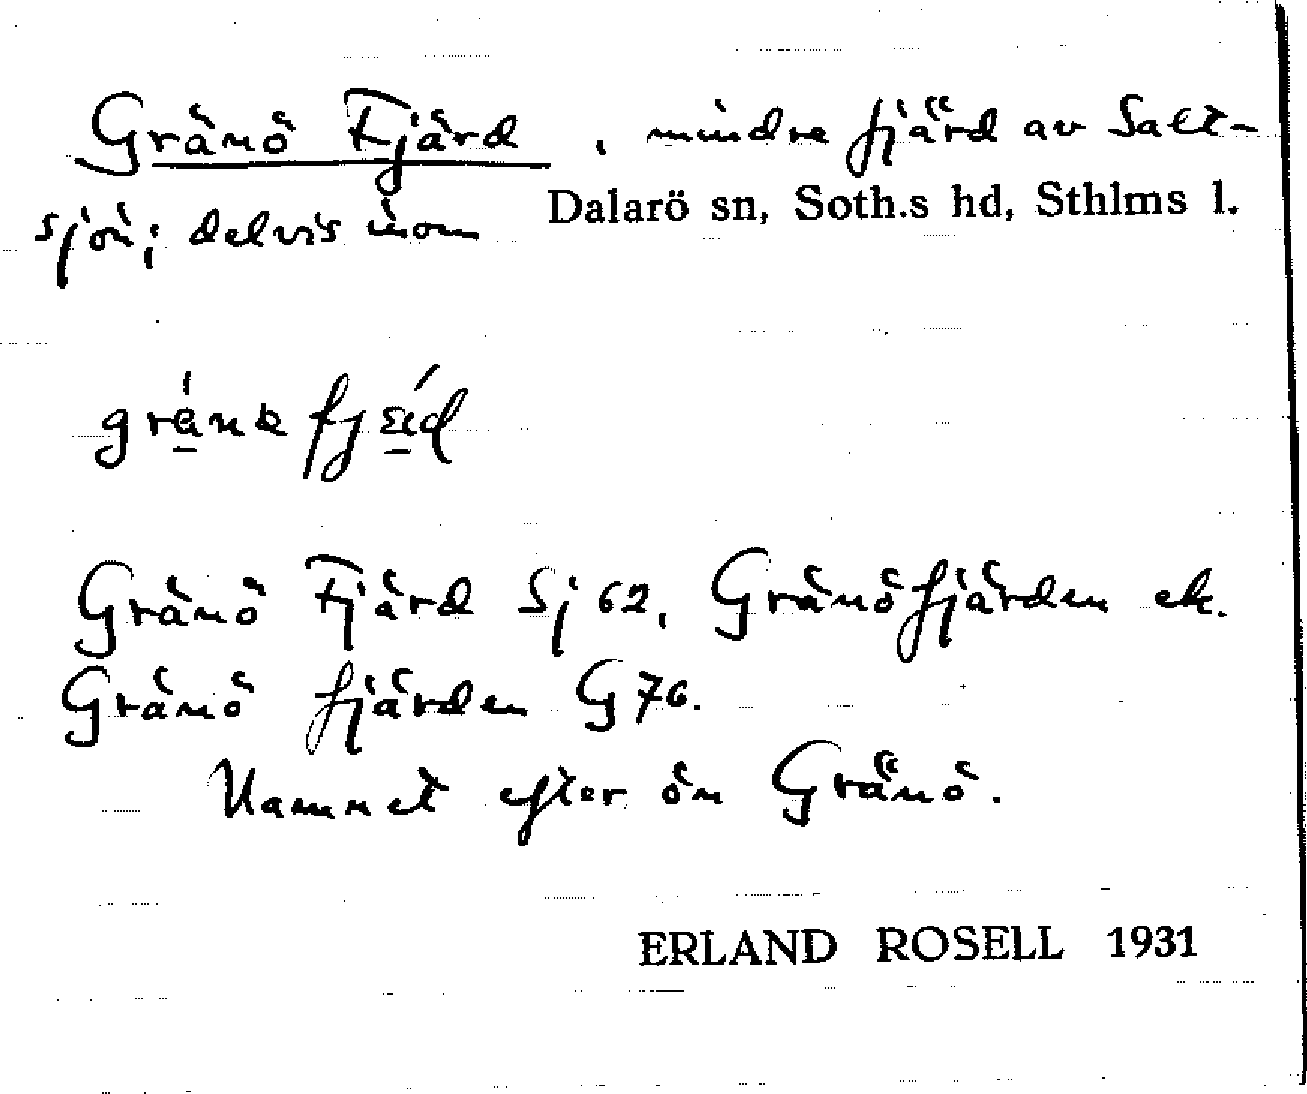 Gränö Fjärd, mindre fjärd av Salt-
sjön; delvis inom Dalarö sn, Soth.s hd, Sthlms l.
Gränö Fjärd Sj 62, Gränöfjärden ek.
Gränö fjärden G 76.
Namnet efter ön Gränö.
ERLAND ROSELL 1931